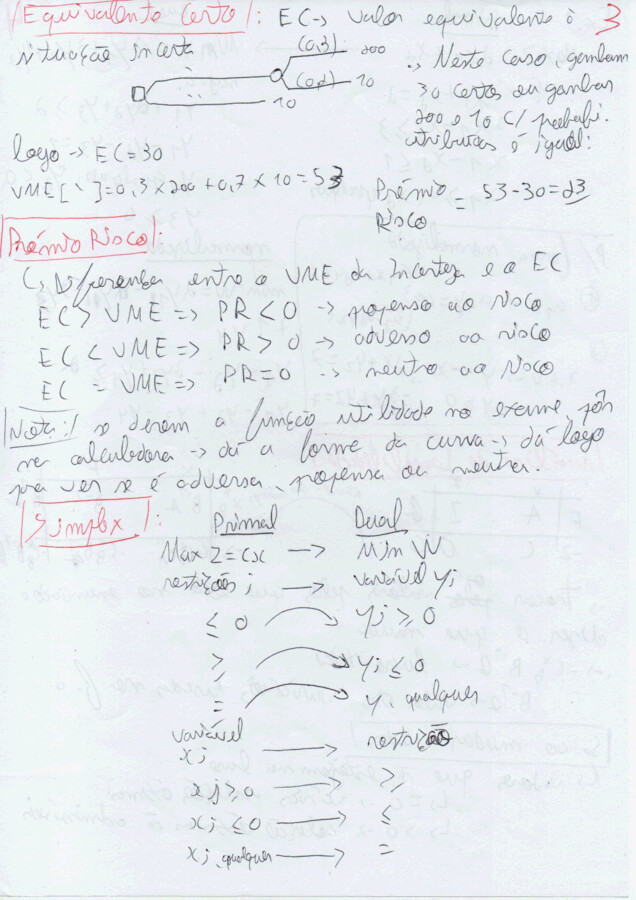 Equivalente Certo: EC → valor equivalente à 3
situação incerta
(0,3) 200
(0,7) 10
10
∴ Neste caso, ganham
30 certos ou ganhar
200 e 10 c/ probabi.
atribuídas é igual!
logo → EC = 30
VME[ ] = 0,3 x 200 + 0,7 x 10 = 53
Prémio Risco = 53-30=23
Prémio Risco:
↳ Diferença entre o VME da Incerteza e o EC
EC > VME => PR < 0 → propenso ao risco
EC < VME => PR > 0 → adverso ao risco
EC = VME => PR = 0 → neutro ao risco
Nota: se derem a função utilidade no exame, pôr
na calculadora → dá a forma da curva → dá logo
pra ver se é adversa, propensa ou neutra.
Simplex:
Primal Dual
Max Z = cx → Min W
restrição j → variável yj
≤ 0 → yj ≥ 0
≥ → yj ≤ 0
= → yj qualquer
variável xj → restrição
xj ≥ 0 → ≥
xj ≤ 0 → ≤
xj qualquer → =